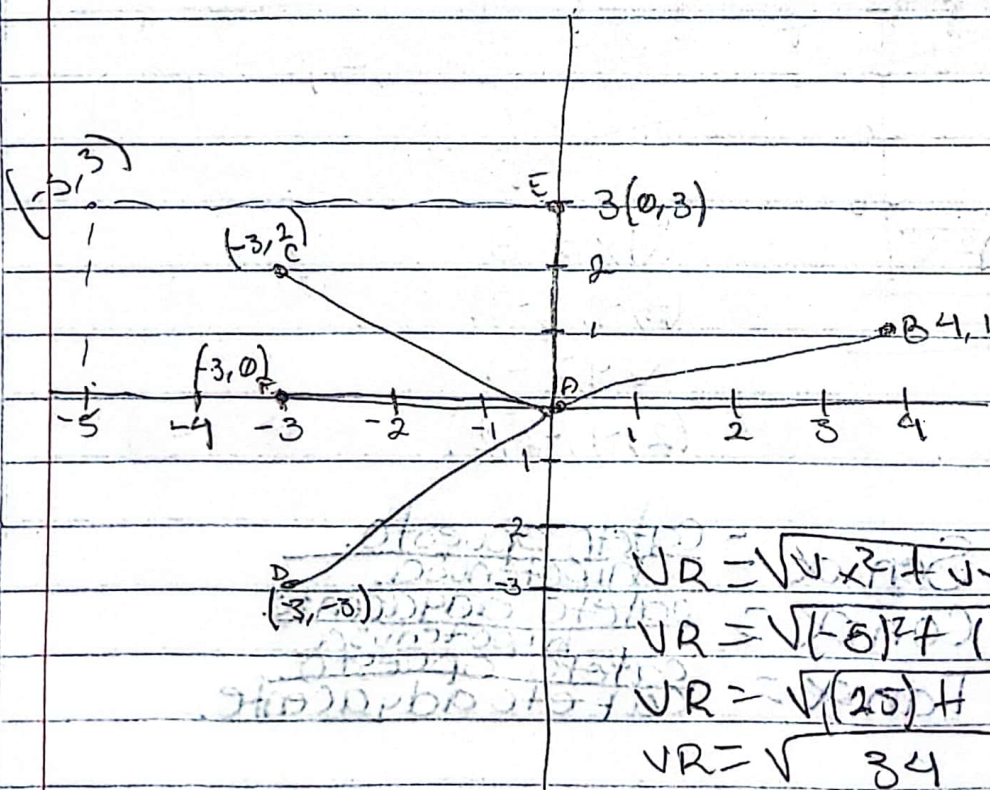 (-5, 3)
E 3(0,3)
(-3, 2)
C
2
1 B 4, 1
(-3, 0)
F A
-5 -4 -3 -2 -1 1 2 3 4
1
-2
D -3
(-3, -3)
VR = √Vx² + V
VR = √(-5)² + (
VR = √(25) +
VR = √ 34